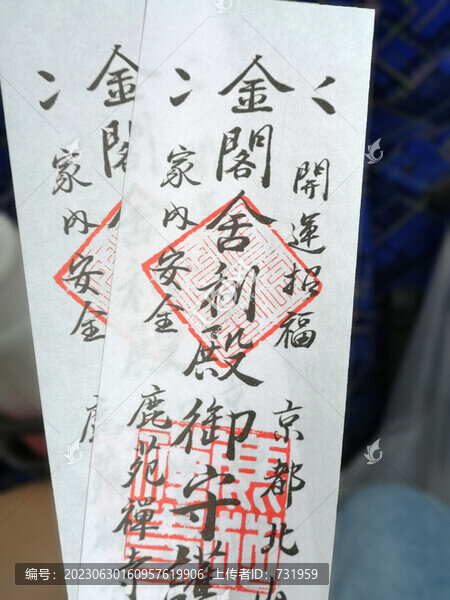 開運招福
京都北山
金閣舎利殿御守護
家内安全
鹿苑禅寺
金閣
家内安全
鹿
编号:20230630160957619906 上传者ID:731959